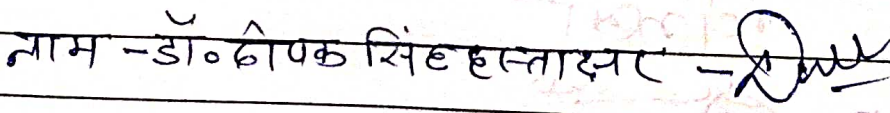 नाम - डॉ० दीपक सिंह हस्ताक्षर -